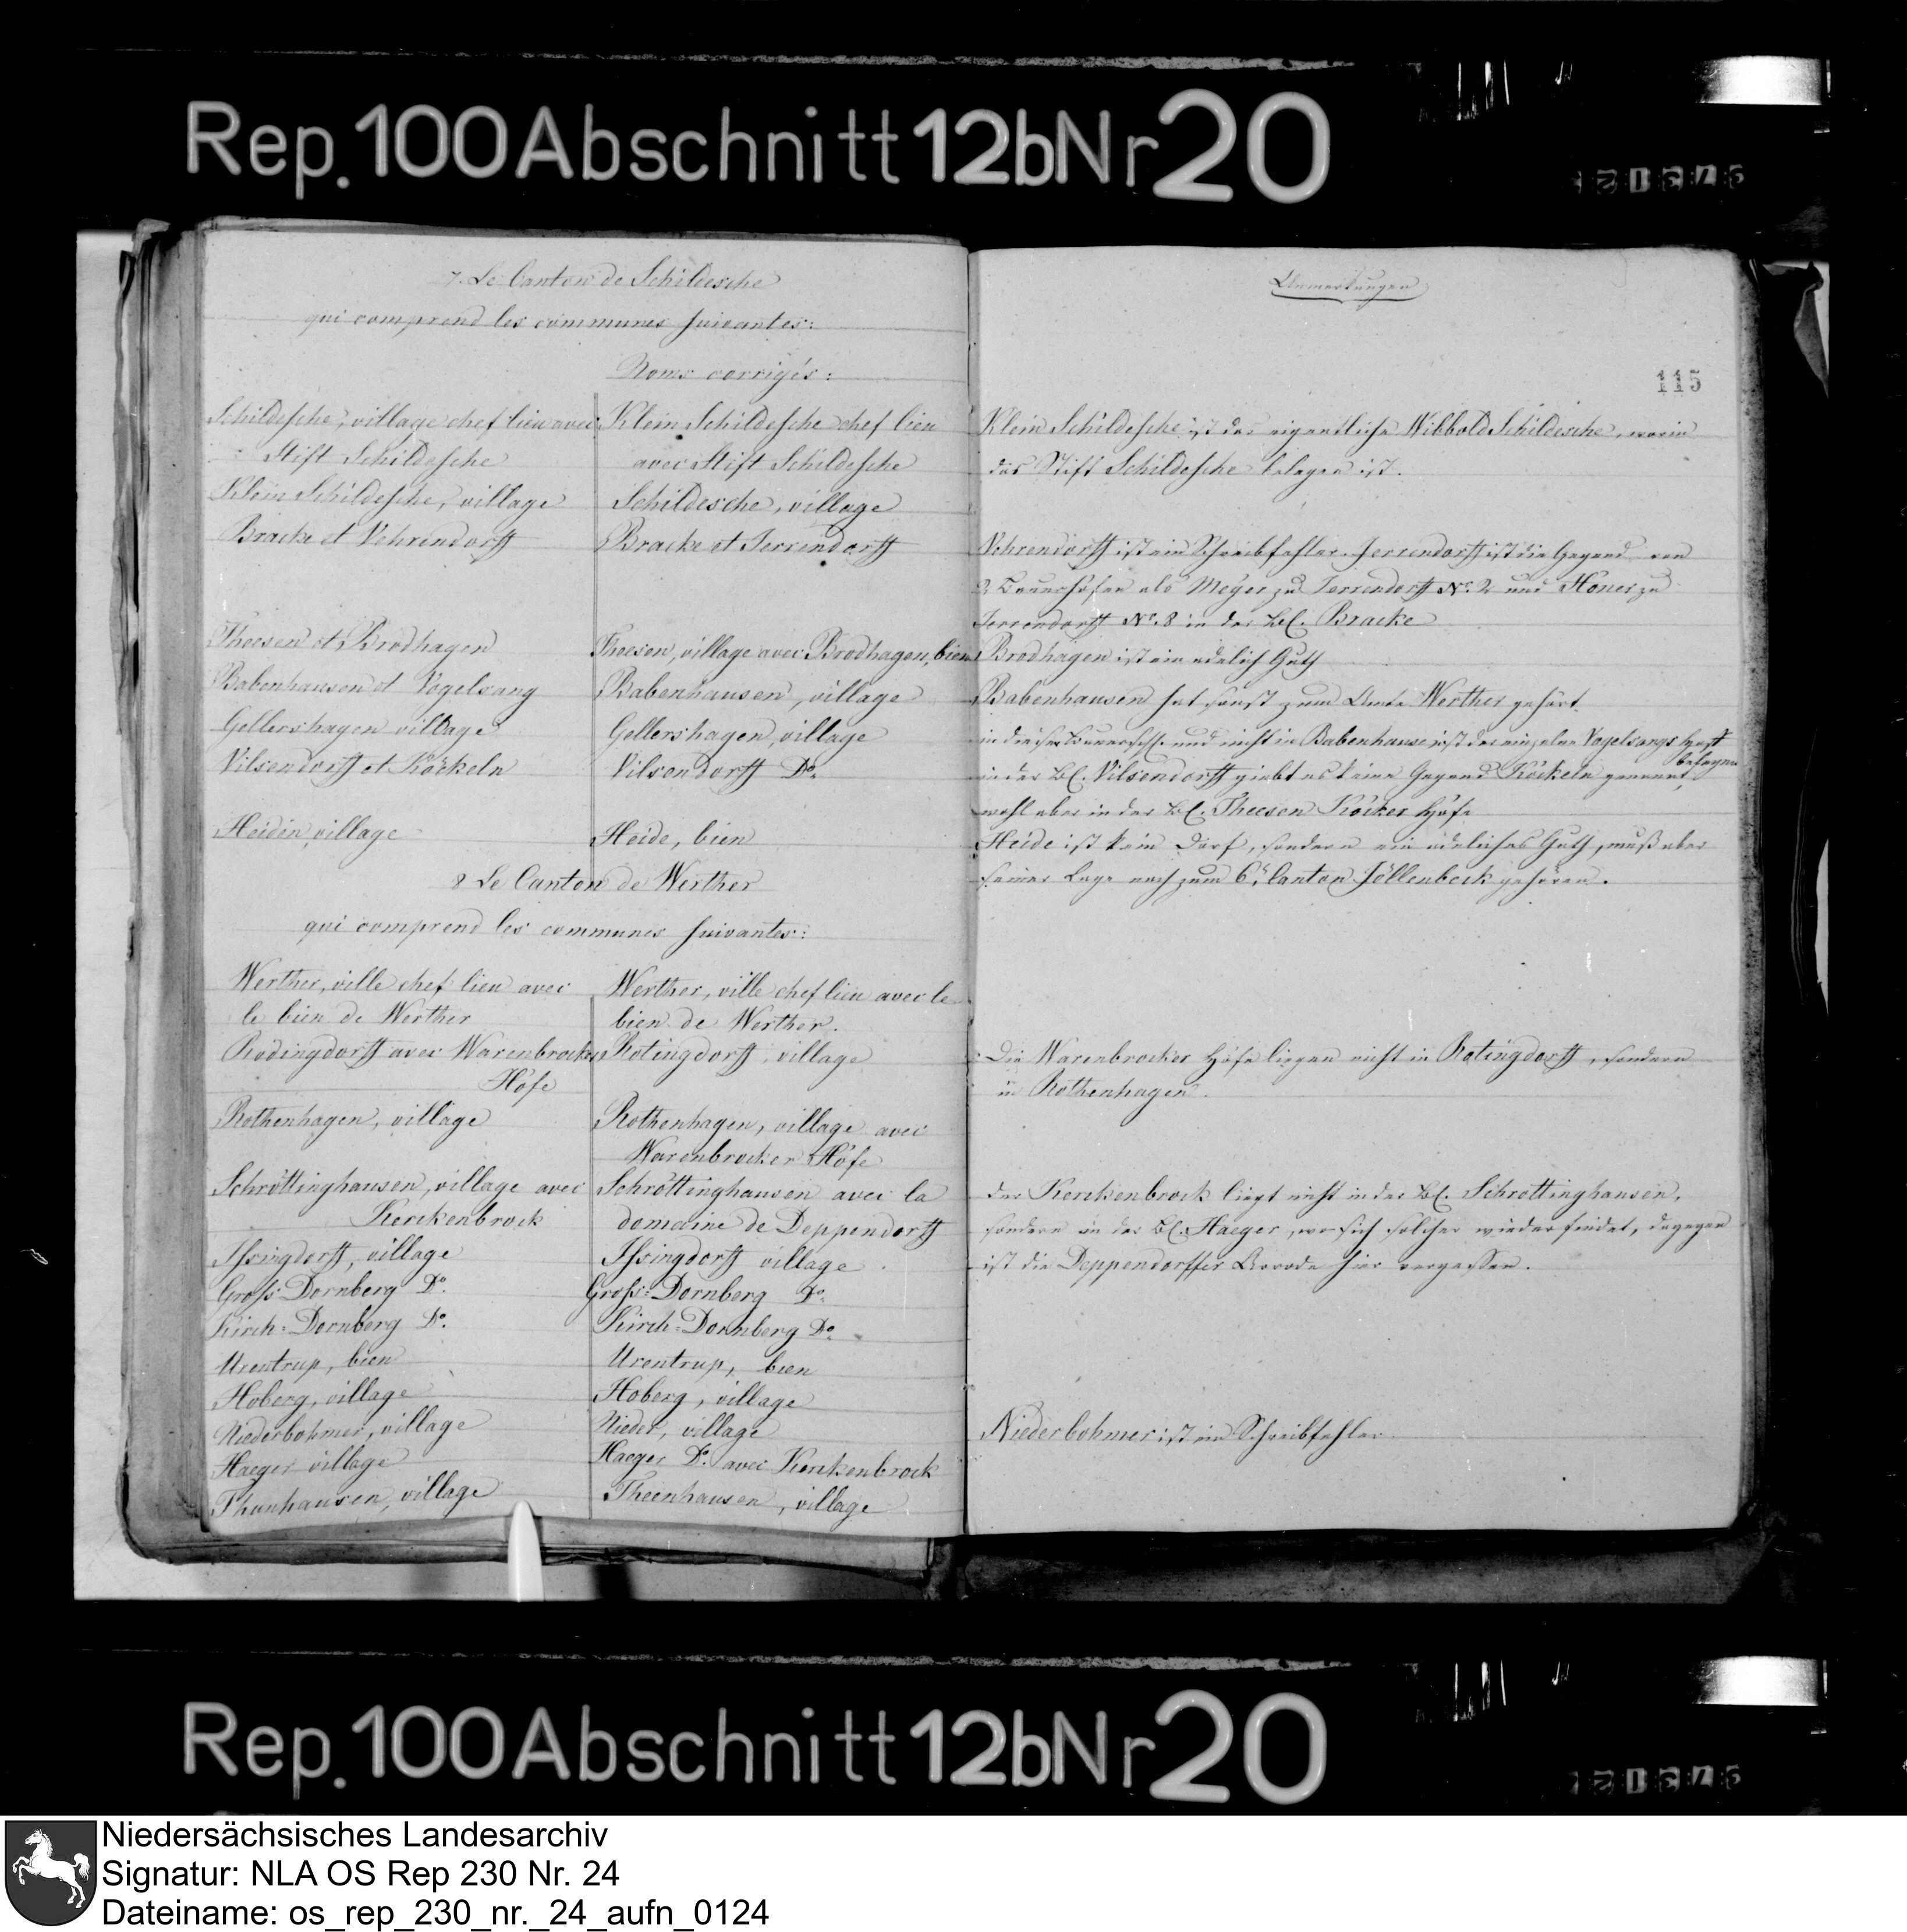 Rep. 100 Abschnitt 12b Nr 20
7. Le Canton de Schildesche
qui comprend les communes suivantes:
Noms corrigés:
Schildesche, village chef lieu avec
Stift Schildesche
Klein Schildesche, village
Bracke et Vehrendorff
Theesen et Brodhagen
Babenhausen et Vogelsang
Gellershagen village
Vilsendorff et Köckeln
Heiden village
Klein Schildesche chef lieu
avec Stift Schildesche
Schildesche, village
Bracke et Jerrendorff
Theesen, village avec Brodhagen, bien
Babenhausen, village
Gellershagen, village
Vilsendorff Do.
Heide, bien
8 Le Canton de Werther
qui comprend les communes suivantes:
Werther, ville chef lieu avec
le bien de Werther
Rodingdorff avec Warenbrocker
Höfe
Rothenhagen, village
Schröttinghausen, village avec
Kerckenbrock
Issingdorff, village
Gross-Dornberg Do.
Kirch-Dornberg Do.
Urentrup, bien
Hoberg, village
Niederbohmer, village
Haeger village
Thunhausen, village
Werther, ville chef lieu avec le
bien de Werther.
Rotingdorff, village
Rothenhagen, village avec
Warenbrocker Höfe
Schröttinghausen avec la
domaine de Deppendorff
Issingdorff village
Gross-Dornberg Do.
Kirch-Dornberg Do.
Urentrup, bien
Hoberg, village
Nieder, village
Haeger Do. avec Kerckenbrock
Theenhausen, village
Anmerkungen
115
Klein Schildesche ist das eigentliche Wibbold Schildesche, worin
das Stift Schildesche belegen ist.
Vehrendorff ist ein Schreibfehler. Jerrendorff ist die Gegend von
2 Bauerhöfen als Meyer zu Jerrendorff No. 2 und Honer zu
Jerrendorff No. 8 in der Bf. Bracke
Brodhagen ist ein adelich Guth
Babenhausen hat sonst zum Amte Werther gehört.
in dieser Bauersch. und nicht in Babenhausen ist der einzelne Vogelsangs Hoff
belegen
in der Bf. Vilsendorff giebt es keine Gegend Köckeln genannt,
wohl aber in der Bf. Theesen Köcker Höfe
Heide ist kein Dorf, sondern ein adeliches Guth, muß aber
seiner Lage nach zum 6t. Canton Jöllenbeck gehören.
Die Warenbrocker Höfe liegen nicht in Rotingdorff, sondern
in Rothenhagen.
der Kerckenbrock liegt nicht in der Bf. Schrottinghausen,
sondern in der Bf. Haeger, wo sich solcher wieder findet, dagegen
ist die Deppendorffer hier vergessen.
Niederbohmer ist ein Schreibfehler
Rep. 100 Abschnitt 12b Nr 20
Niedersächsisches Landesarchiv
Signatur: NLA OS Rep 230 Nr. 24
Dateiname: os_rep_230_nr._24_aufn_0124